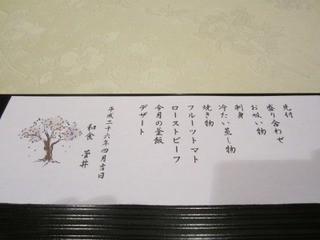 先付
盛り合わせ
お吸い物
刺身
冷たい蒸し物
焼き物
フルーツトマト
ローストビーフ
今月の釜飯
デザート
平成二十六年四月吉日
和食 菅井